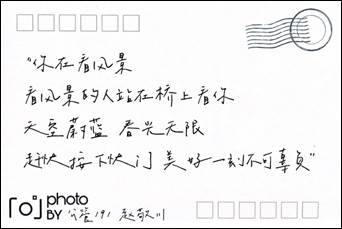 “你在看风景
看风景的人站在桥上看你
天空蔚蓝 春光无限
赶快按下快门 美好一刻不可辜负”
photo
BY 公管191 赵敬川